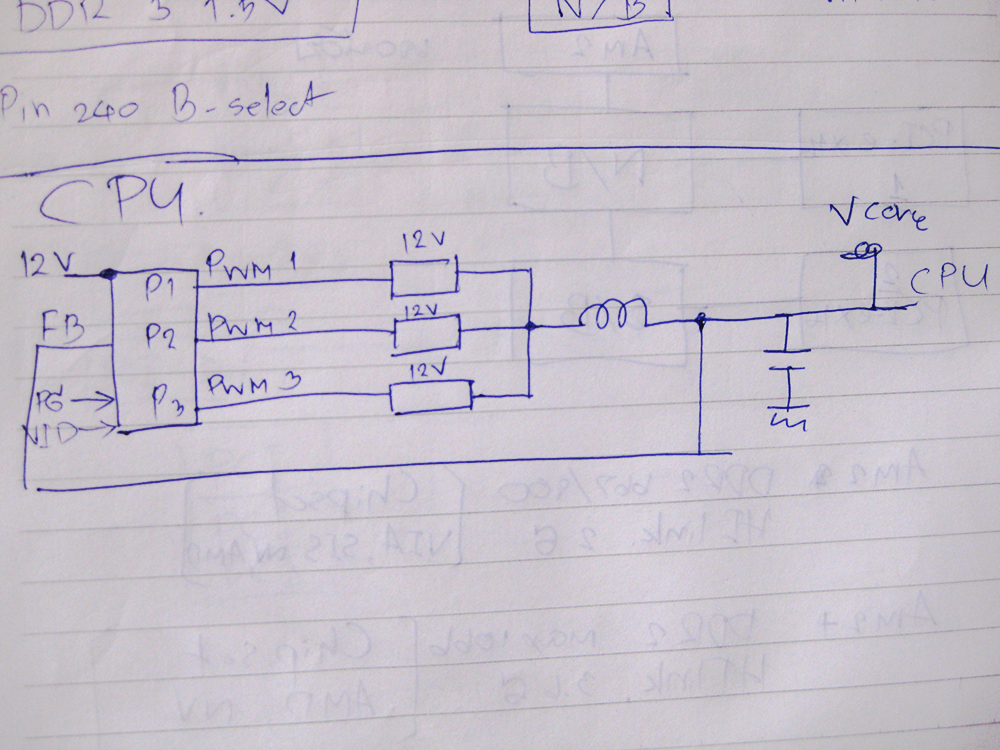 DDR 3 1.5V
N/B
Pin 240 B-select
CPU.
Vcore
12V
PWM 1
12V
CPU
P1
FB
P2
PWM 2
12V
PG
P3
PWM 3
12V
VID